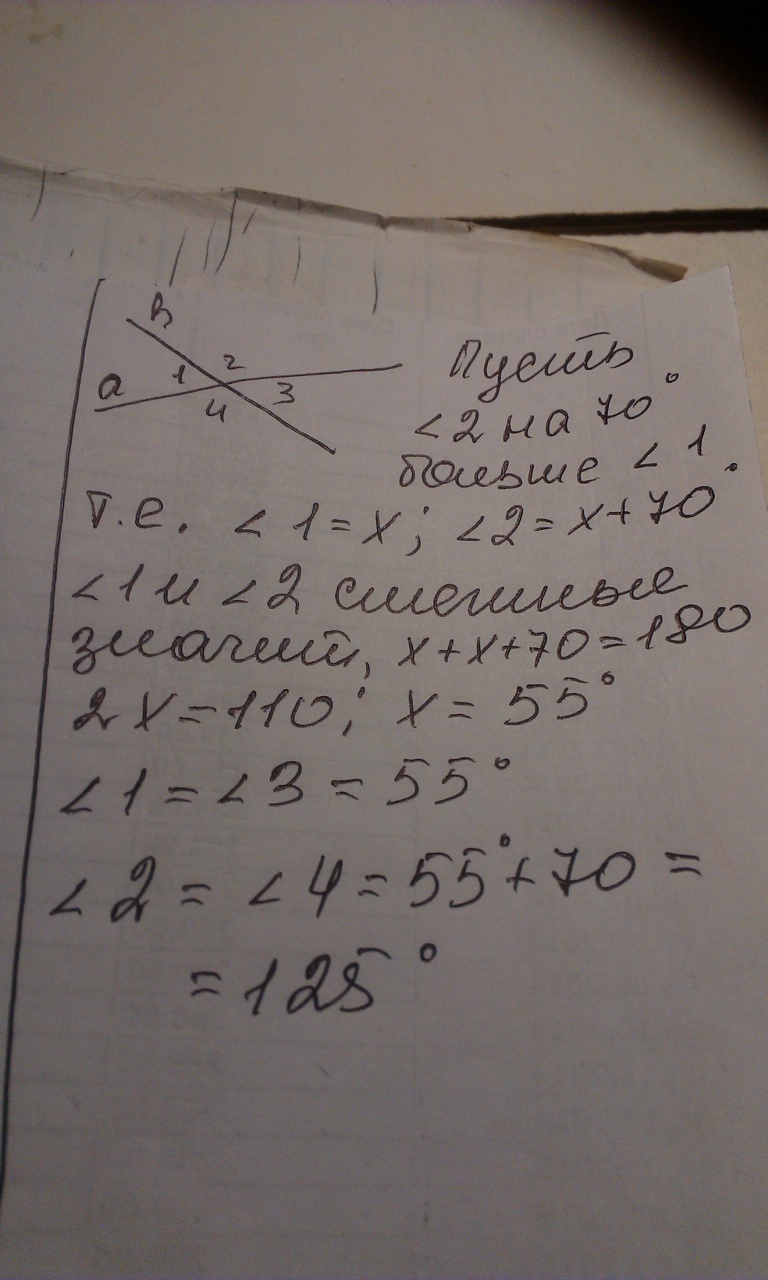 в
а 1 2 3 4
Пусть
<2 на 70°
больше <1.
т.е. <1=х; <2=х+70°
<1 и <2 смежные
значит, х+х+70=180
2х=110; х=55°
<1=<3=55°
<2=<4=55°+70=
=125°